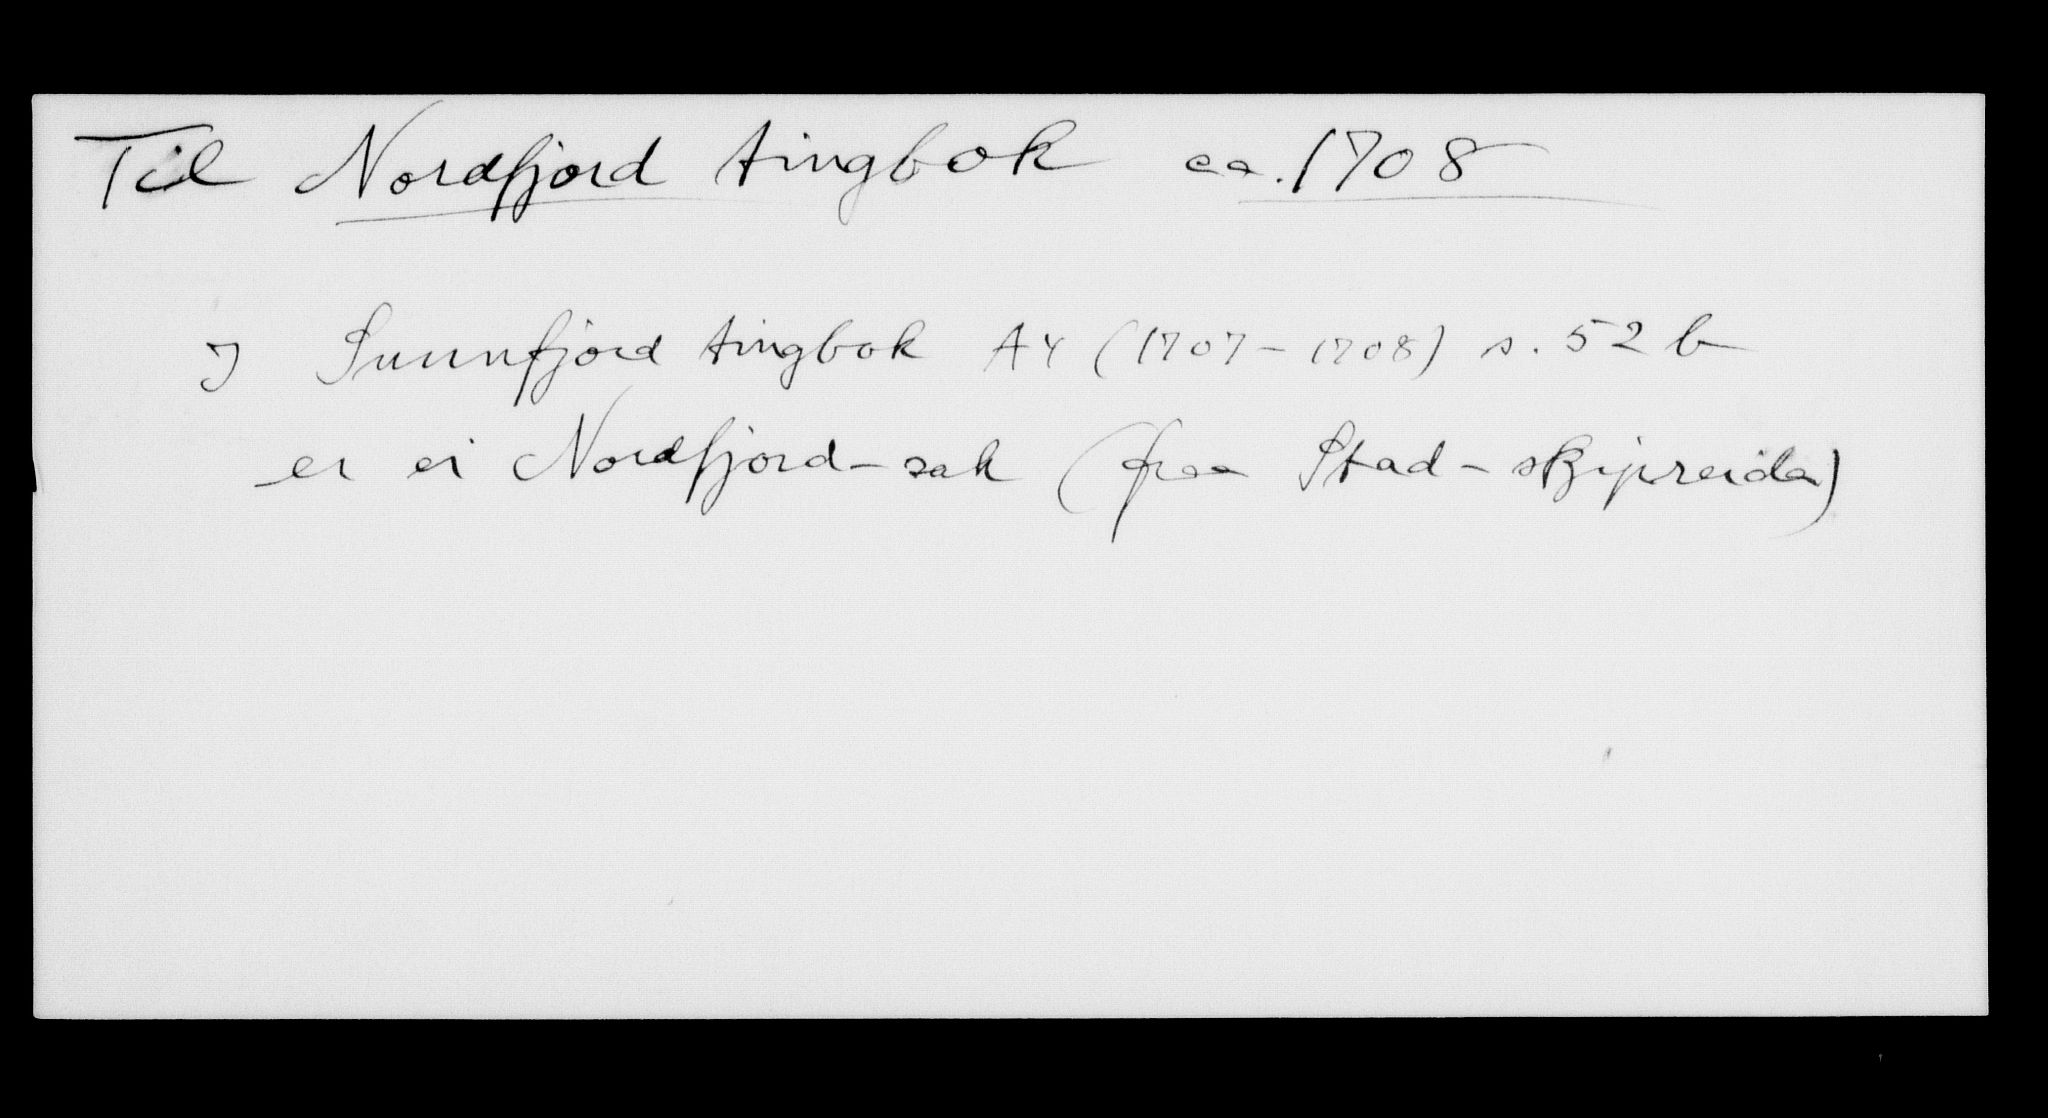 Til Nordfjord tingbok ca. 1708
I Sunnfjord tingbok A4 (1707-1708) s. 52 b
er ei Nordfjord-sak (fraa Stad-skipreida)